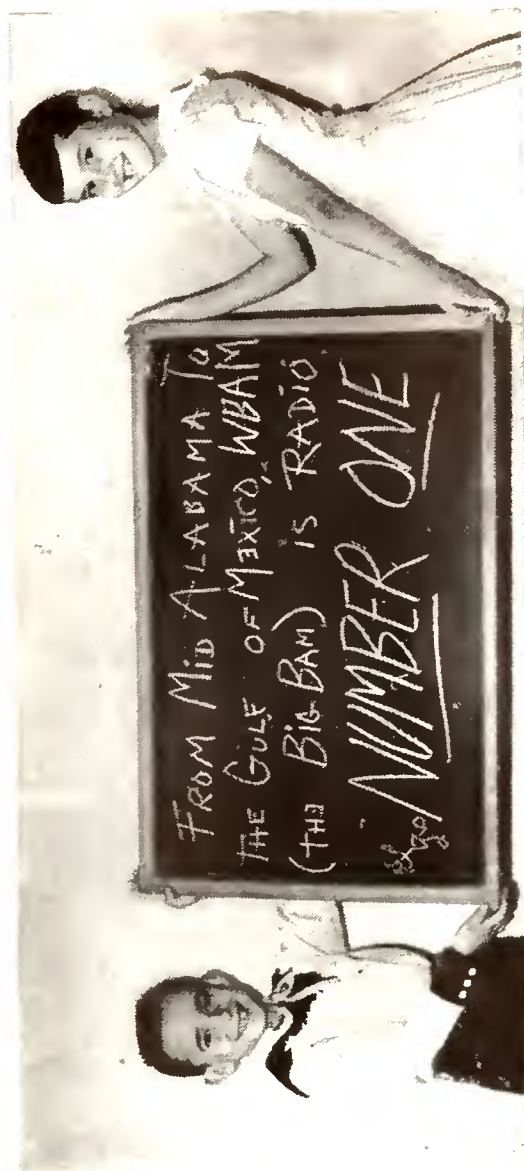 FROM MID ALABAMA TO
THE GULF OF MEXICO, WBAM
(THE BIG BAM) IS RADIO
NUMBER ONE